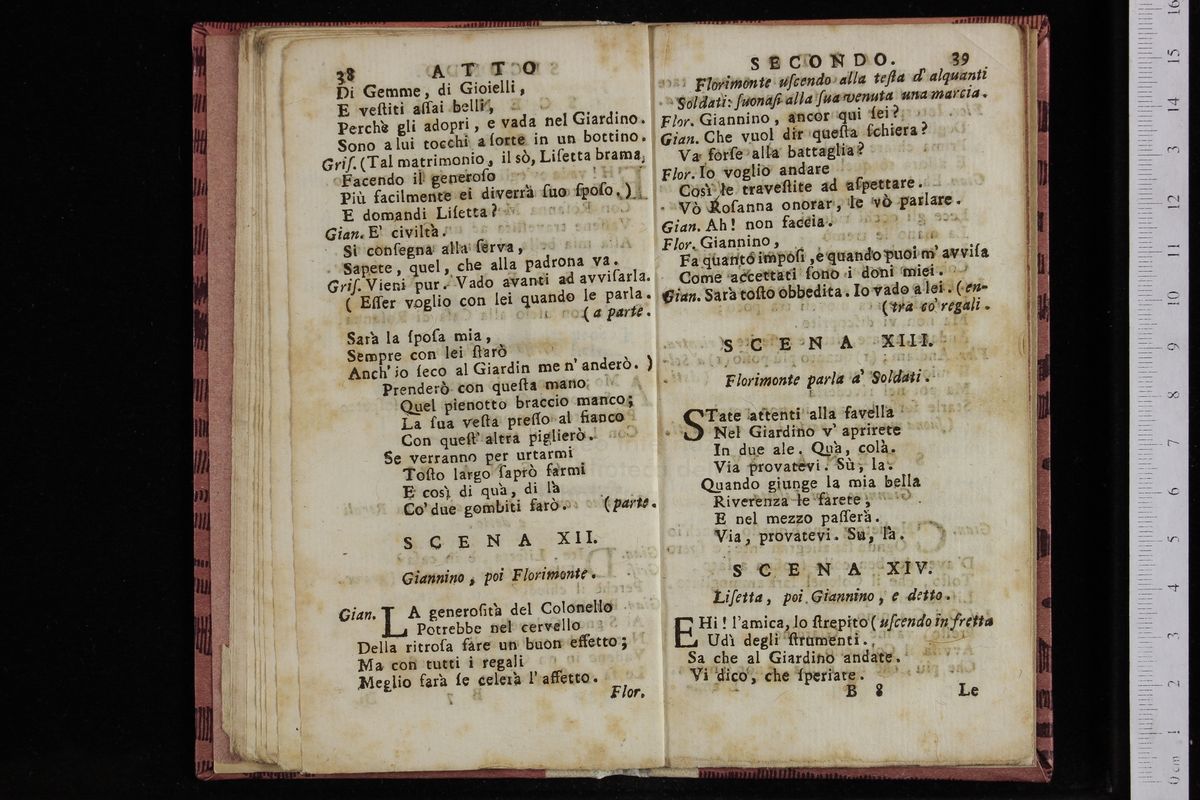 38 ATTO
Di Gemme, di Gioielli,
E veſtiti aſſai belli,
Perchè gli adopri, e vada nel Giardino.
Sono a lui tocchi a ſorte in un bottino.
Griſ. (Tal matrimonio, il sò, Liſetta brama,
Facendo il generoſo
Più facilmente ei diverrà ſuo ſpoſo.)
E domandi Liſetta?
Gian. E' civiltà.
Si conſegna alla ſerva,
Sapete, quel, che alla padrona va.
Griſ. Vieni pur. Vado avanti ad avviſarla.
( Eſſer voglio con lei quando le parla.
(a parte.
Sarà la ſpoſa mia,
Sempre con lei ſtarò
Anch' io ſeco al Giardin me n' anderò. )
Prenderò con queſta mano
Quel pienotto braccio manco;
La ſua veſta preſſo al fianco
Con queſt' altra piglierò.
Se verranno per urtarmi
Toſto largo ſaprò farmi
E così di quà, di là
Co' due gombiti farò. (parte.
SCENA XII.
Giannino, poi Florimonte.
Gian. LA generoſità del Colonello
Potrebbe nel cervello
Della ritroſa fare un buon effetto;
Ma con tutti i regali
Meglio farà ſe celerà l' affetto.
Flor.
SECONDO. 39
Florimonte uſcendo alla teſta d' alquanti
Soldati: ſuonaſi alla ſua venuta una marcia.
Flor. Giannino, ancor qui ſei?
Gian. Che vuol dir queſta ſchiera?
Va forſe alla battaglia?
Flor. Io voglio andare
Così le traveſtite ad aſpettare.
Vò Roſanna onorar, le vò parlare.
Gian. Ah! non faccia.
Flor. Giannino,
Fa quanto impoſi, e quando puoi m' avviſa
Come accettati ſono i doni miei.
Gian. Sarà toſto obbedita. Io vado a lei. (en-
(tra co' regali.
SCENA XIII.
Florimonte parla a' Soldati.
STate attenti alla favella
Nel Giardino v' aprirete
In due ale. Quà, colà.
Via provatevi. Sù, la.
Quando giunge la mia bella
Riverenza le farete,
E nel mezzo paſſerà.
Via, provatevi. Su, là.
SCENA XIV.
Liſetta, poi Giannino, e detto.
EHi! l'amica, lo ſtrepito (uſcendo in fretta
Udì degli ſtrumenti.
Sa che al Giardino andate.
Vi dico, che ſperiate.
B 8 Le